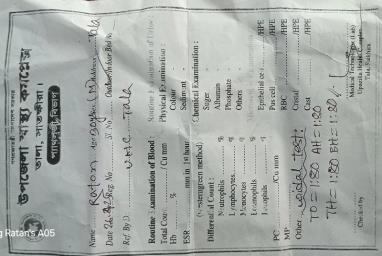 গণপ্রজাতন্ত্রী বাংলাদেশ সরকার
উপজেলা স্বাস্থ্য কমপ্লেক্স
তালা, সাতক্ষীরা।
প্যাথলজী বিভাগ
Name Ratan Address Tala
Date Reg. No Sl. No Outdoor/Indoor Bed No
Ref. By D UHC Tala
Routine Examination of Blood:
Total Count / Cu mm
Hb %
ESR mm in 1st hour
(Westergreen method)
Differential Count:
Neutrophils %
Lymphocytes %
Monocytes %
Eosinophils %
Basophils %
PC / Cu mm
MP
Other Widal test:
TO = 1:80 AH = 1:20
TH = 1:80 BH = 1:20
Routine Examination of Urine
Physical Examination:
Colour
Sediment
Chemical Examination:
Suger
Albuman
Phosphate
Others
Epithelial /HPE
Pus cell /HPE
RBC /HPE
Crystal /HPE
Cast /HPE
Checked by
Medical Technologist (Lab)
Upazila Health Complex
Tala, Satkhira
g Ratan's A05